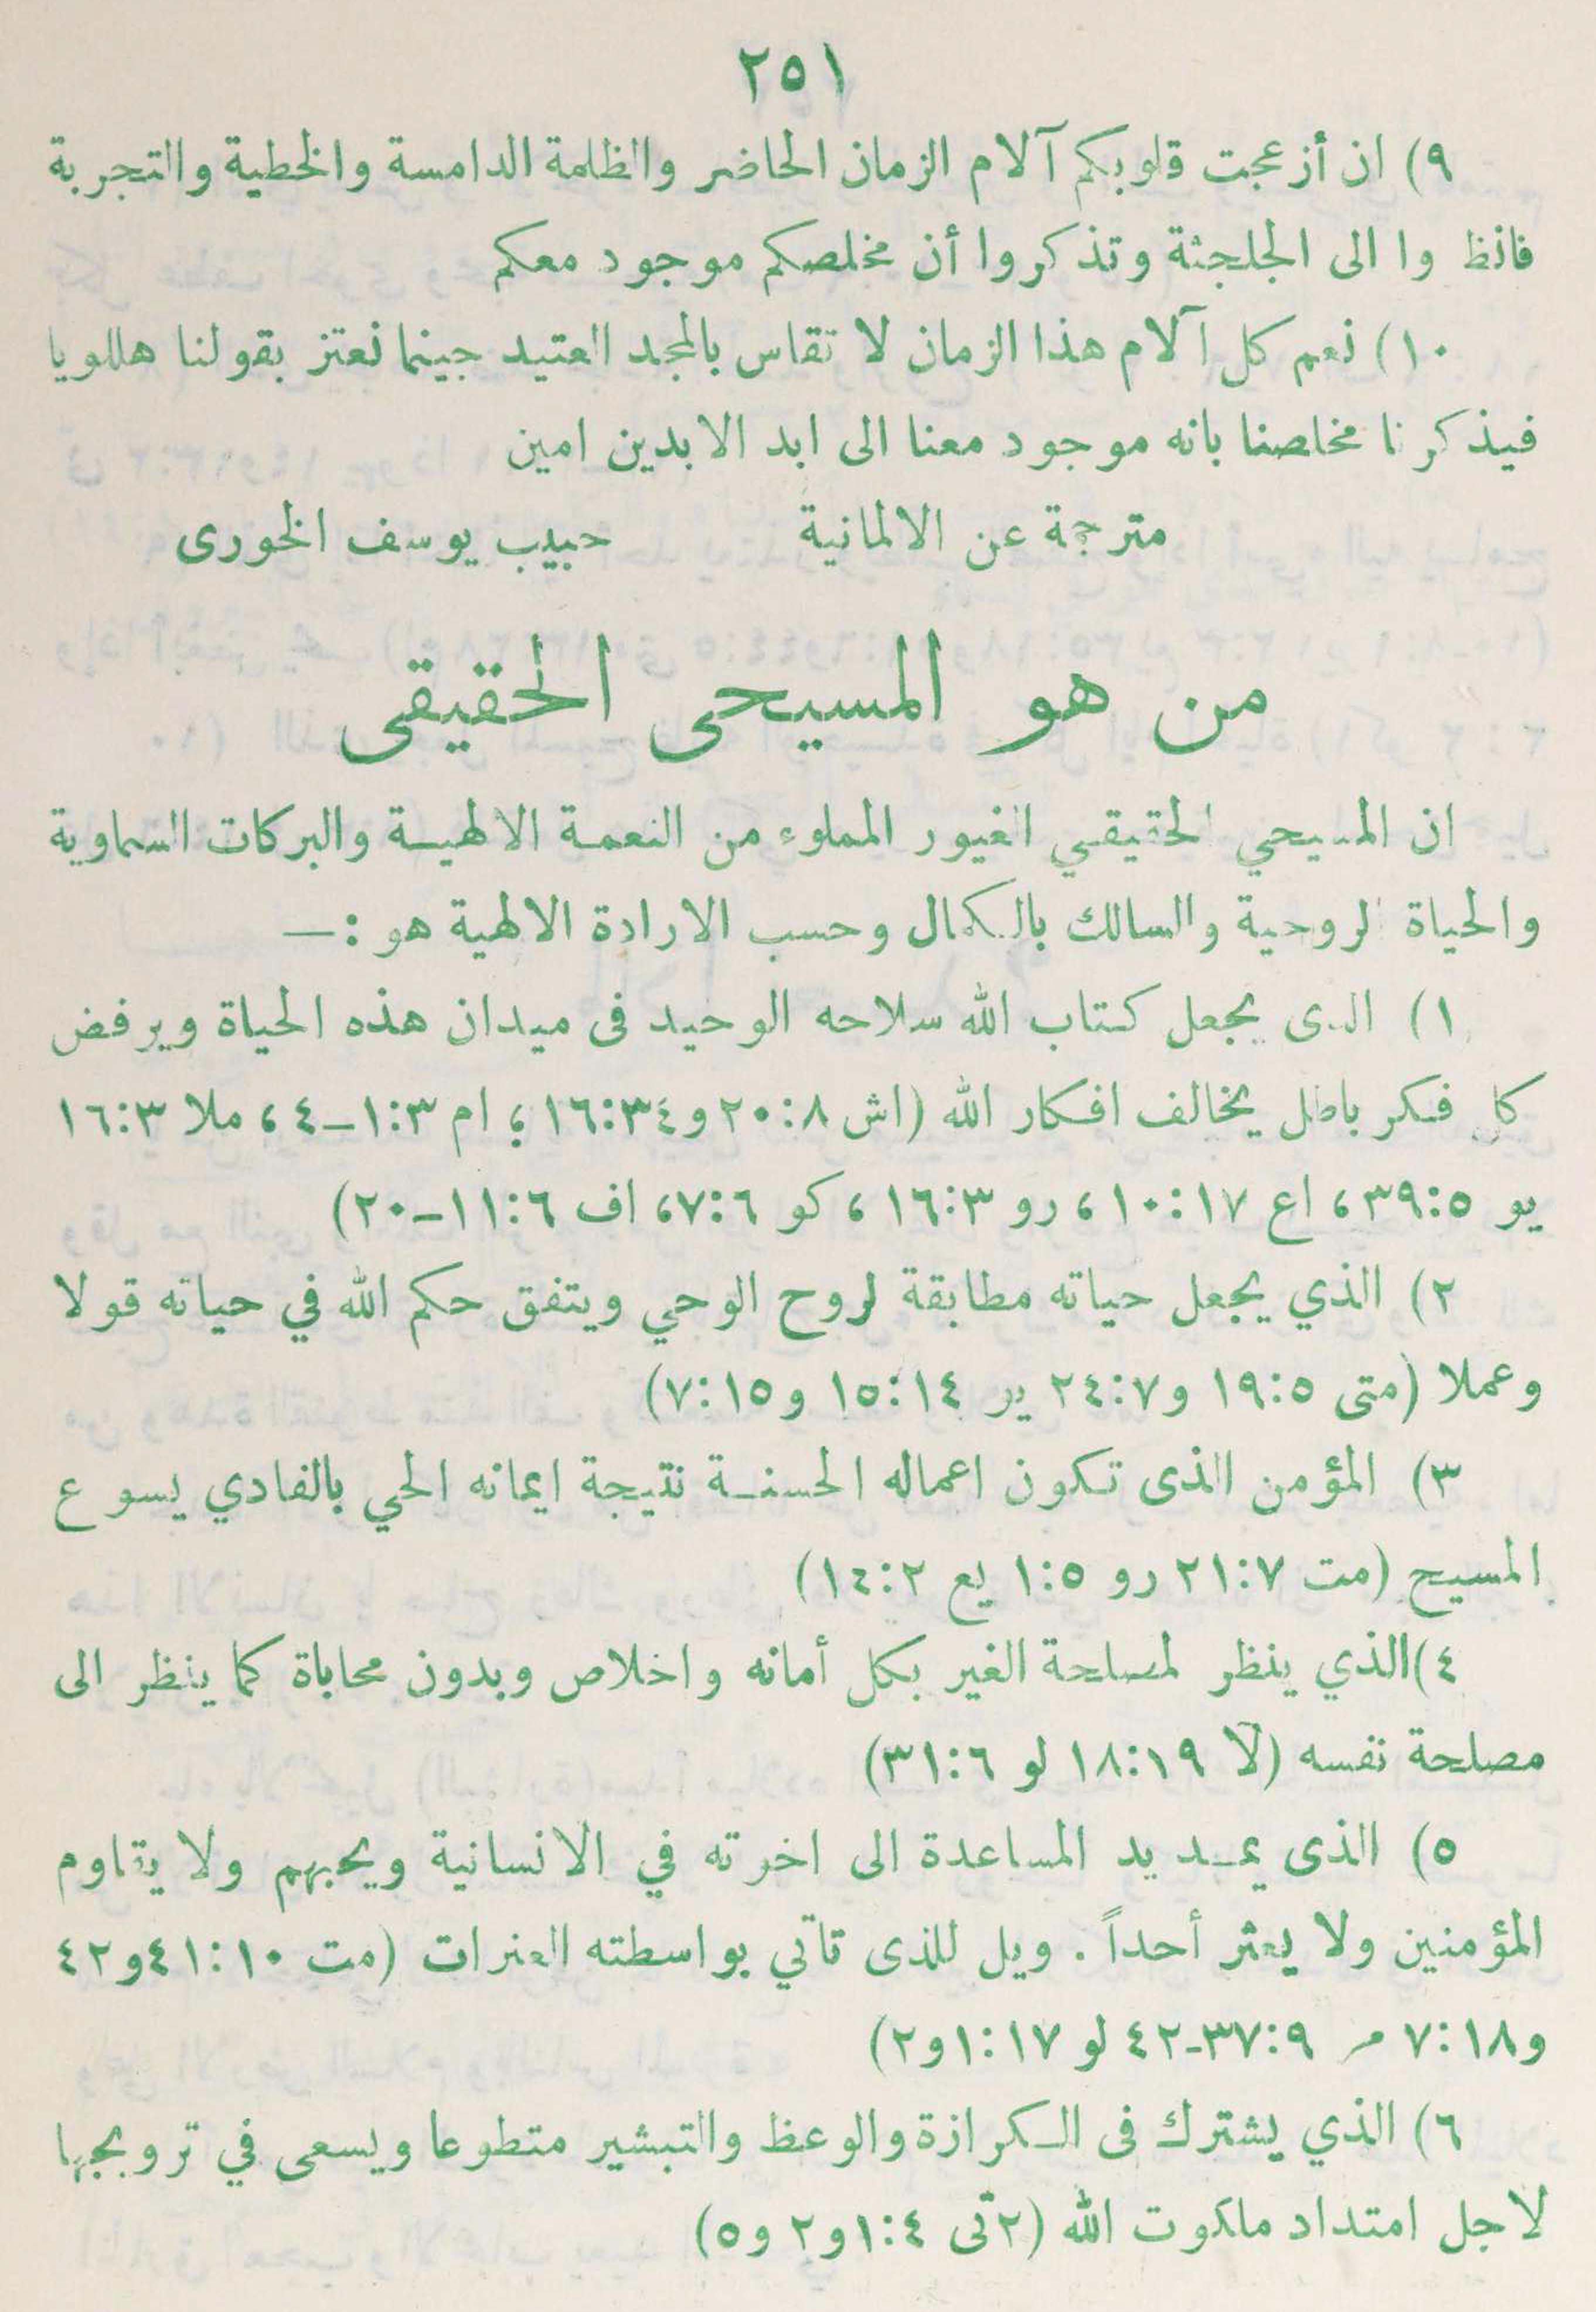 ٢٥١
٩) ان أزعجت قلوبكم آلام الزمان الحاضر والظلمة الدامسة والخطية والتجربة
فانظ وا الى الجلجثة وتذكروا أن مخلصكم موجود معكم
١٠) نعم كل آلام هذا الزمان لا تقاس بالمجد العتيد جينما نعتز بقولنا هللويا
فيذكرنا مخلصنا بانه موجود معنا الى ابد الابدين امين
مترجمة عن الالمانية حبيب يوسف الخورى
من هو المسيحى الحقيقى
ان المسيحي الحقيقي الغيور المملوء من النعمة الالهية والبركات السماوية
والحياة الروحية والسالك بالكمال وحسب الارادة الالهية هو :—
١) الذى يجعل كتاب الله سلاحه الوحيد فى ميدان هذه الحياة ويرفض
كل فكر باطل يخالف افكار الله (اش ٢٠:٨ و١٦:٣٤ ؛ ام ١:٣-٤ ، ملا ١٦:٣
يو ٣٩:٥ ، اع ١٠:١٧ ، رو ١٦:٣ ، كو ٧:٦، اف ١١:٦-٢٠)
٢) الذي يجعل حياته مطابقة لروح الوحي ويتفق حكم الله في حياته قولا
وعملا (متى ١٩:٥ و٢٤:٧ ير ١٥:١٤ و٧:١٥)
٣) المؤمن الذى تكون اعماله الحسنة نتيجة ايمانه الحي بالفادي يسوع
المسيح (مت ٢١:٧ رو ١:٥ يع ١٤:٢)
٤) الذي ينظر لمصلحة الغير بكل أمانه واخلاص وبدون محاباة كما ينظر الى
مصلحة نفسه (لا ١٨:١٩ لو ٣١:٦)
٥) الذى يمد يد المساعدة الى اخرته في الانسانية ويحبهم ولا يقاوم
المؤمنين ولا يعثر أحداً . ويل للذى تاتي بواسطته العثرات (مت ٤١:١٠ و٤٢
و٧:١٨ مر ٣٧:٩-٤٢ لو ١:١٧ و٢)
٦) الذي يشترك فى الكرازة والوعظ والتبشير متطوعا ويسعى في ترويجها
لاجل امتداد ملكوت الله (٢تى ١:٤ و٢ و٥)